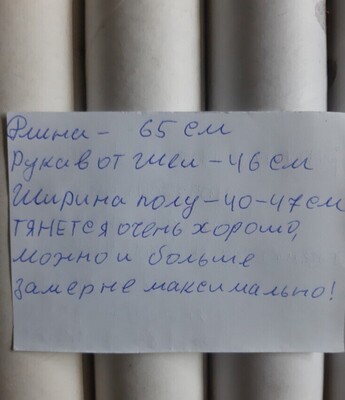 Длина - 65 см
Рукав от шеи - 46 см
Ширина полу - 40-47 см
ТЯНЕТСЯ очень хорошо,
можно и больше
замер не максимально!